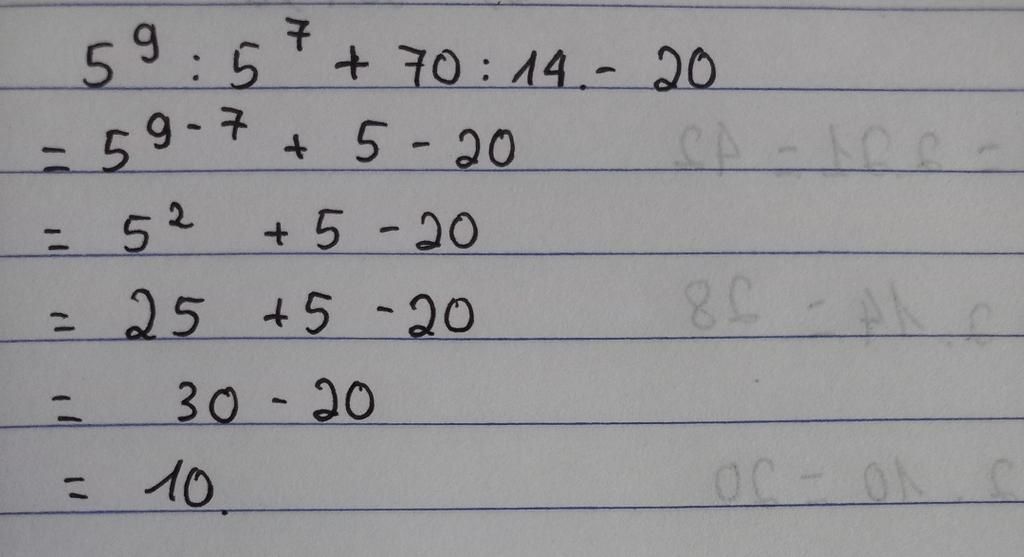 5⁹ : 5⁷ + 70 : 14. - 20
= 5⁹⁻⁷ + 5 - 20
= 5² + 5 - 20
= 25 + 5 - 20
= 30 - 20
= 10.